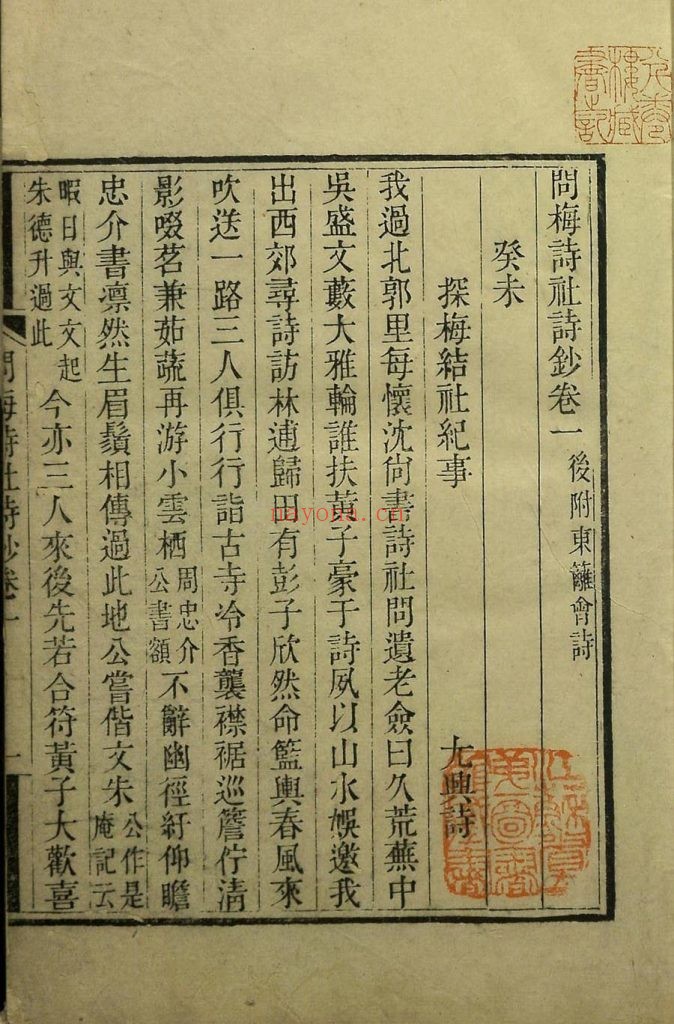 問梅詩社詩鈔卷一 後附東籬會詩
癸未
探梅結社紀事 尤興詩
我過北郭里每懷沈尙書詩社問遺老僉曰久荒蕪中
吳盛文藪大雅輪誰扶黃子豪于詩夙以山水娛邀我
出西郊尋詩訪林逋歸田有彭子欣然命籃輿春風來
吹送一路三人俱行行詣古寺冷香襲襟裾巡簷佇清
影啜茗兼茹蔬再游小雲栖 周忠介公書額 不辭幽徑紆仰瞻
忠介書凛然生眉鬚相傳過此地公嘗偕文朱 公作是庵記云
暇日與文文起朱德升過此 今亦三人來後先若合符黃子大歡喜
問梅詩社詩鈔卷一 一
nayona.cn